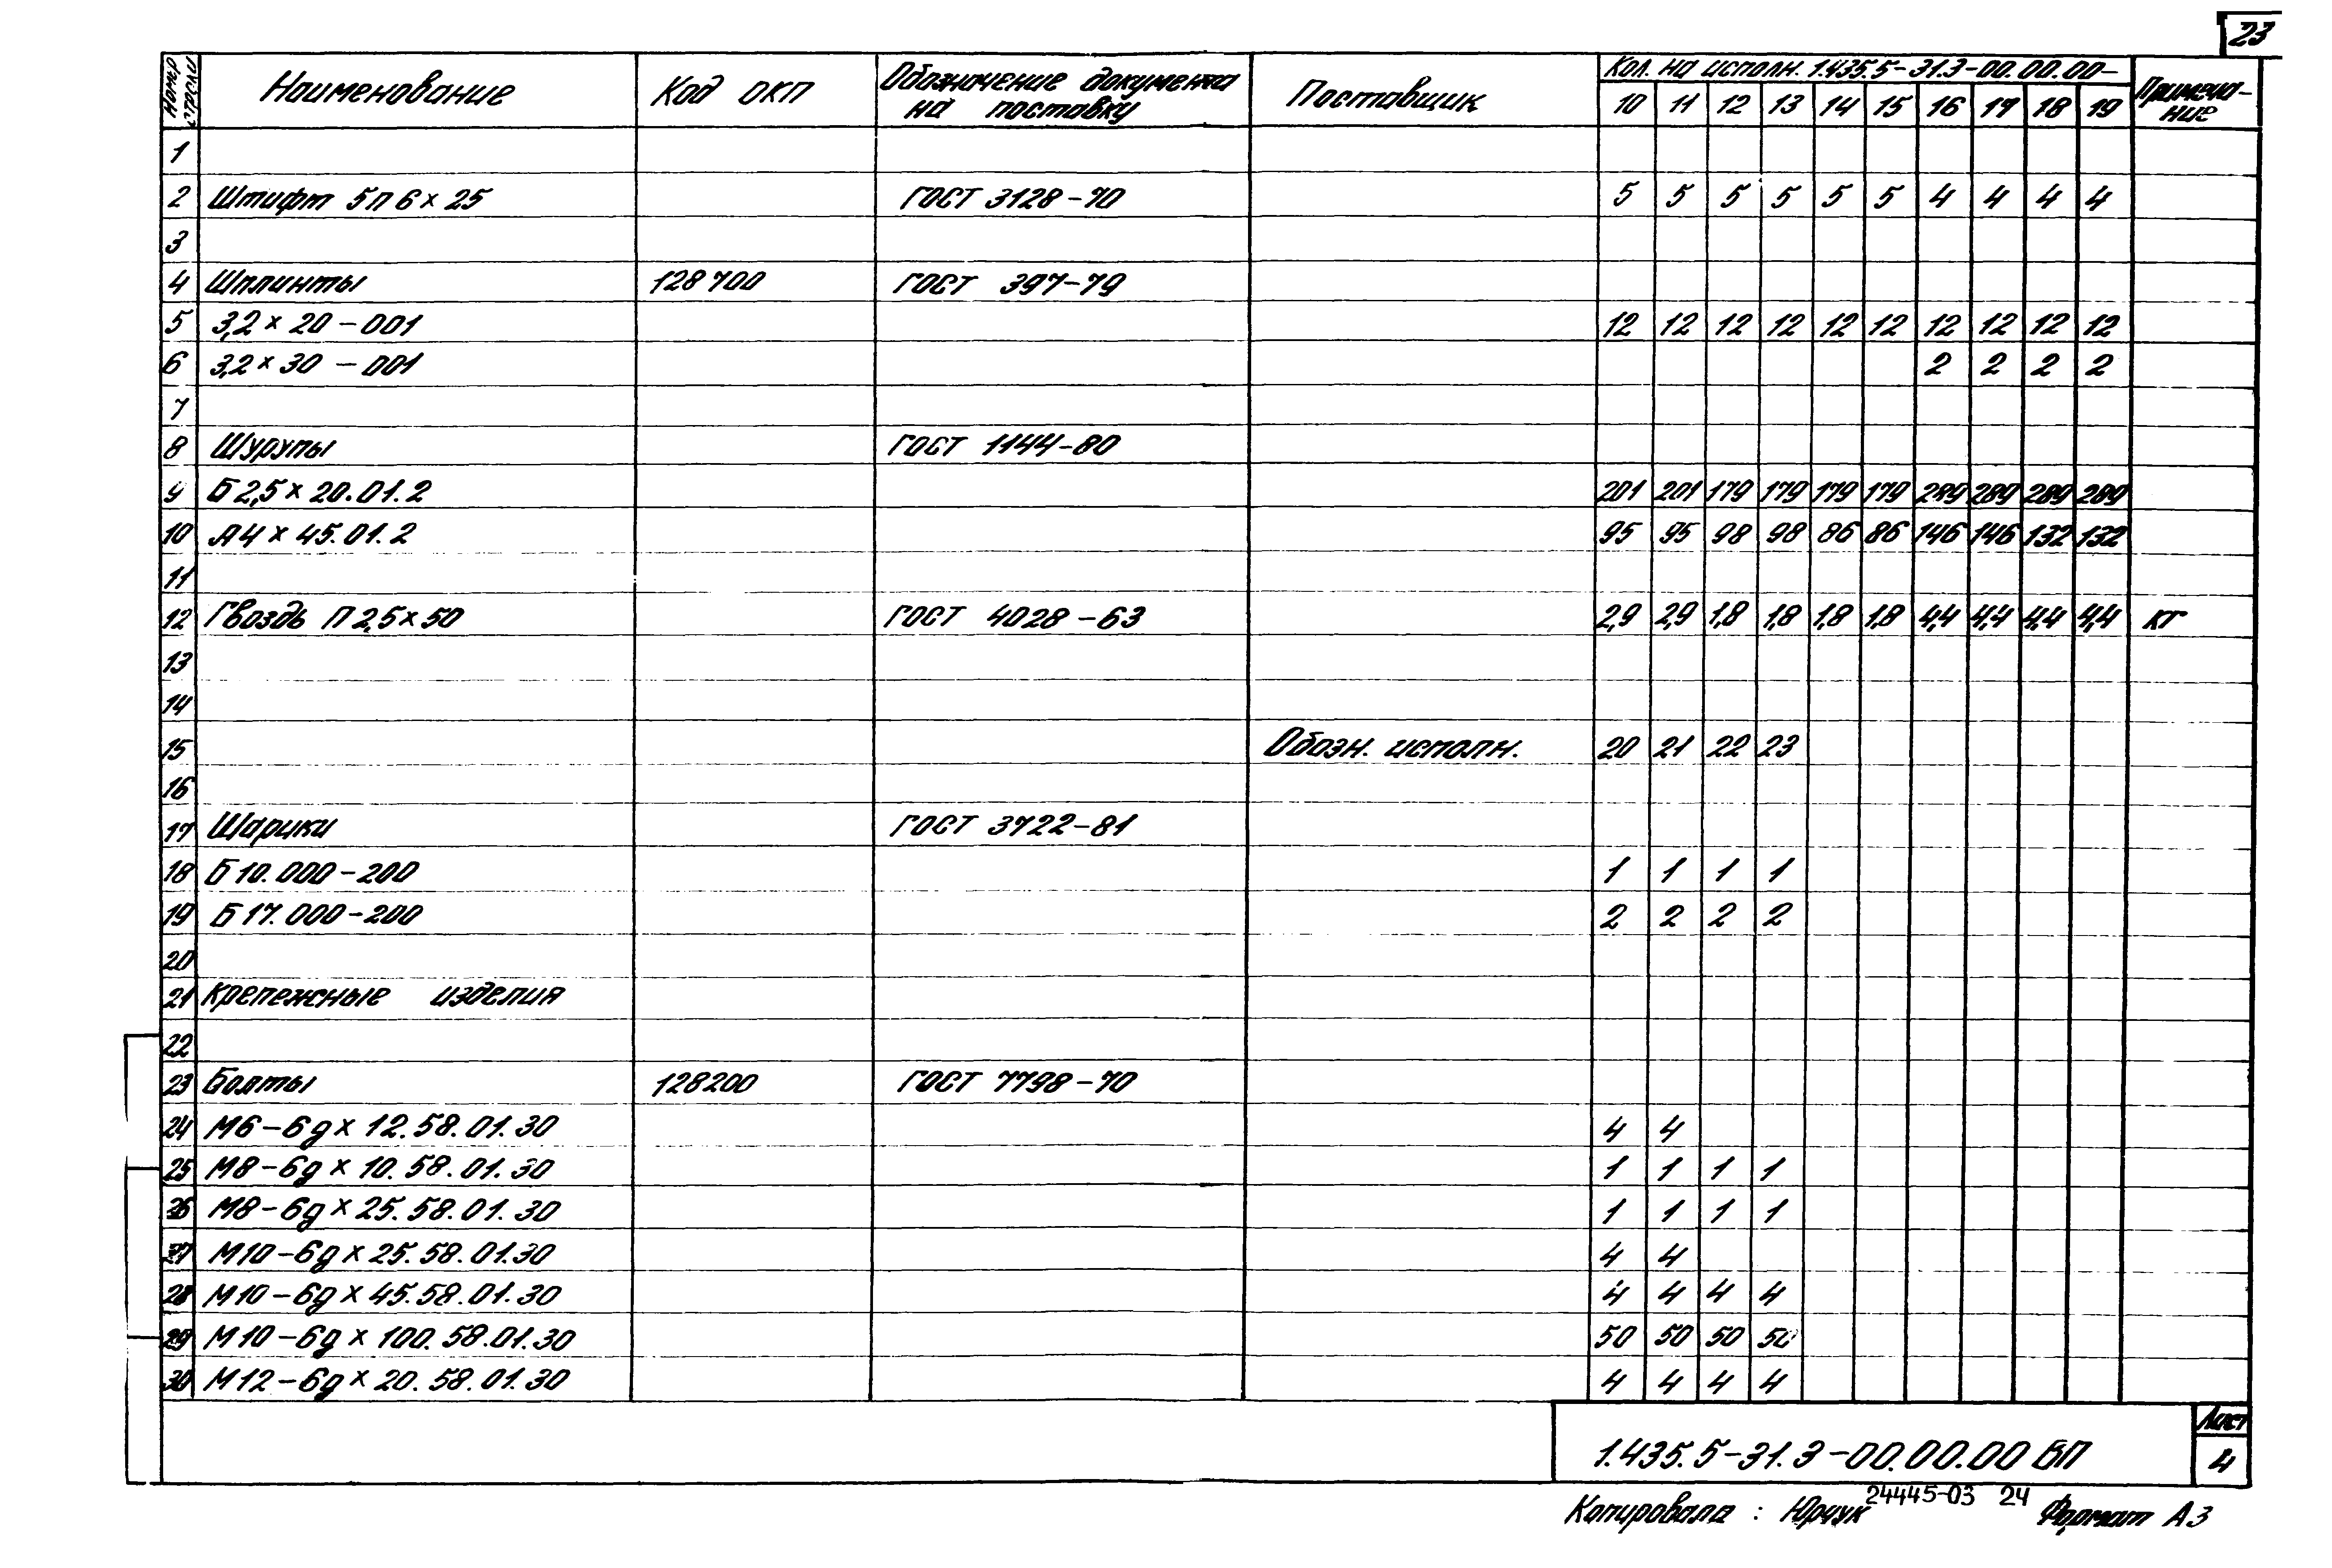 23
Номер строки Наименование Код ОКП Обозначение документа на поставку Поставщик Кол. на исполн. 1.435.5-31.3-00.00.00- Примечание
10 11 12 13 14 15 16 17 18 19
1
2 Штифт 5п6×25 ГОСТ 3128-70 5 5 5 5 5 5 4 4 4 4
3
4 Шплинты 128700 ГОСТ 397-79
5 3,2×20-001 12 12 12 12 12 12 12 12 12 12
6 3,2×30-001 2 2 2 2
7
8 Шурупы ГОСТ 1144-80
9 Б2,5×20.01.2 201 201 179 179 179 179 289 289 289 289
10 А4×45.01.2 95 95 98 98 86 86 146 146 132 132
11
12 Гвоздь П2,5×50 ГОСТ 4028-63 2,9 2,9 1,8 1,8 1,8 1,8 4,4 4,4 4,4 4,4 кг
13
14
15 Обозн. исполн. 20 21 22 23
16
17 Шарики ГОСТ 3722-81
18 Б10.000-200 1 1 1 1
19 Б17.000-200 2 2 2 2
20
21 Крепежные изделия
22
23 Болты 128200 ГОСТ 7798-70
24 М6-6g×12.58.01.30 4 4
25 М8-6g×10.58.01.30 1 1 1 1
26 М8-6g×25.58.01.30 1 1 1 1
27 М10-6g×25.58.01.30 4 4
28 М10-6g×45.58.01.30 4 4 4 4
29 М10-6g×100.58.01.30 50 50 50 50
30 М12-6g×20.58.01.30 4 4 4 4
1.435.5-31.3-00.00.00 ВП
Лист
4
24445-03 24
Копировала: Юрчук Формат А3